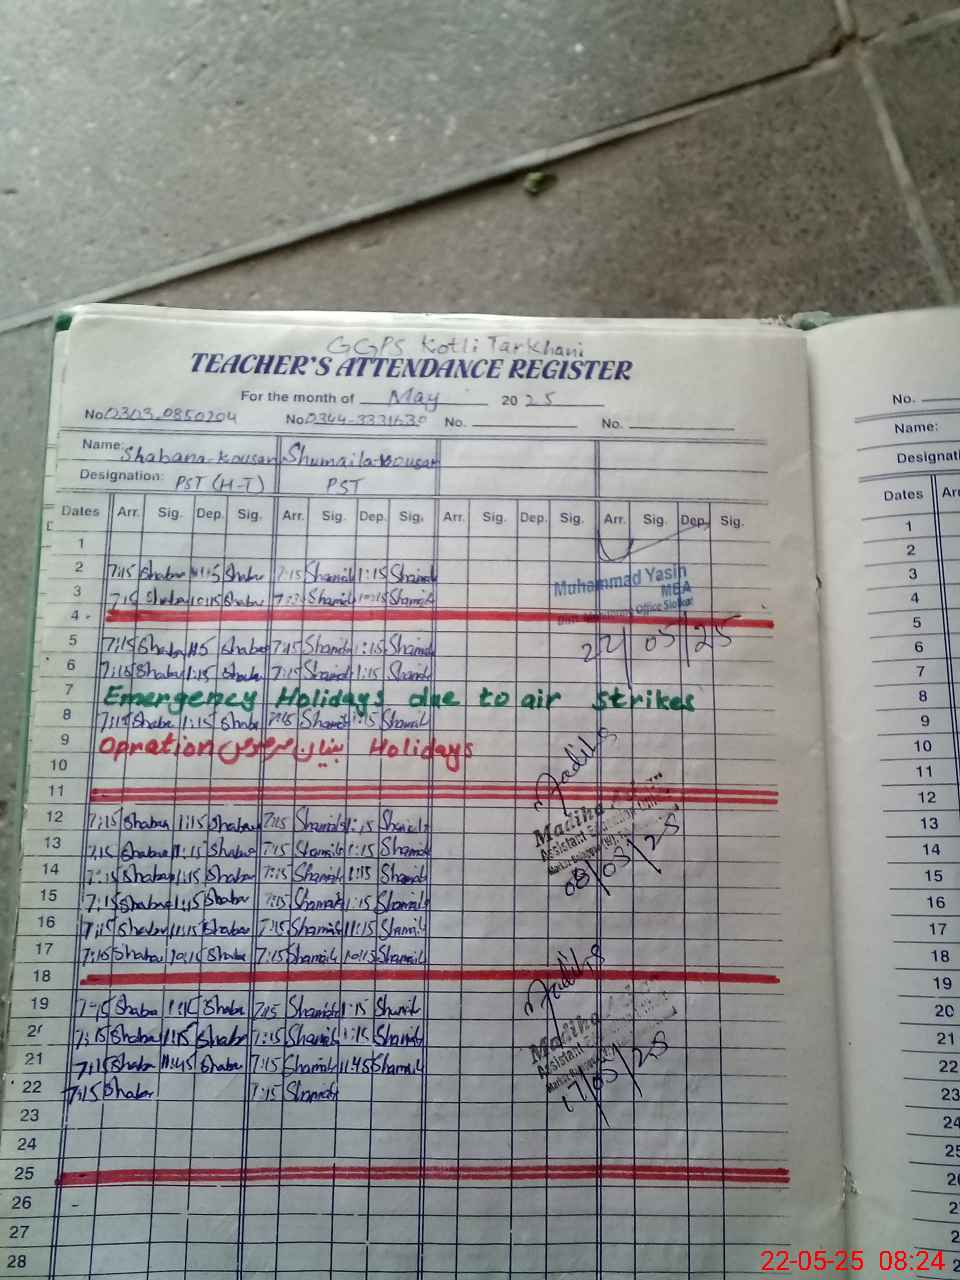 GGPS Kotli Tarkhani
TEACHER'S ATTENDANCE REGISTER
For the month of May 2025
No. 0303-0850204 No. No. No.
Name: Shabana-Kousar Shumaila-Kousar
Designation: PST (H-T) PST
Dates Arr. Sig. Dep. Sig. Arr. Sig. Dep. Sig. Arr. Sig. Dep. Sig. Arr. Sig. Dep. Sig.
1
2 7:15 Shaban Shaban 7:15 Shamila 1:15 Shamila
Muhammad Yasin
MEA
3 7:15 Shaban 10:15 Shaban Shamila Shamila
4
5 7:15 Shaban Shaban 7:15 Shamila 1:15 Shamila
22/05/25
6 7:15 Shaban 1:15 Shaban 7:15 Shamila 1:15 Shamila
7 Emergency Holidays due to air strikes
8 7:15 Shaban 1:15 Shaban 7:15 Shamila 1:15 Shamila
9 Opration بنیان مرصوص Holidays
10
11
12 7:15 Shaban 1:15 Shaban 7:15 Shamila 1:15 Shamila
Madiha
Assistant Education
13 7:15 Shaban 1:15 Shaban 7:15 Shamila 1:15 Shamila
14 7:15 Shaban 1:15 Shaban 7:15 Shamila 1:15 Shamila
15 7:15 Shaban 1:15 Shaban 7:15 Shamila 1:15 Shamila
16 7:15 Shaban 11:15 Shaban 7:15 Shamila 11:15 Shamila
17 7:15 Shaban 10:15 Shaban 7:15 Shamila 10:15 Shamila
18
19 7:15 Shaban 1:15 Shaban 7:15 Shamila 1:15 Shamila
20 7:15 Shaban 1:15 Shaban 7:15 Shamila 1:15 Shamila
Madiha
Assistant
21 7:15 Shaban 11:45 Shaban 7:15 Shamila 11:45 Shamila
17/05/25
22 7:15 Shaban 7:15 Shamila
23
24
25
26
27
28
No.
Name:
Dates
1
2
3
4
5
6
7
8
9
10
11
12
13
14
15
16
17
18
19
20
21
22
23
22-05-25 08:24